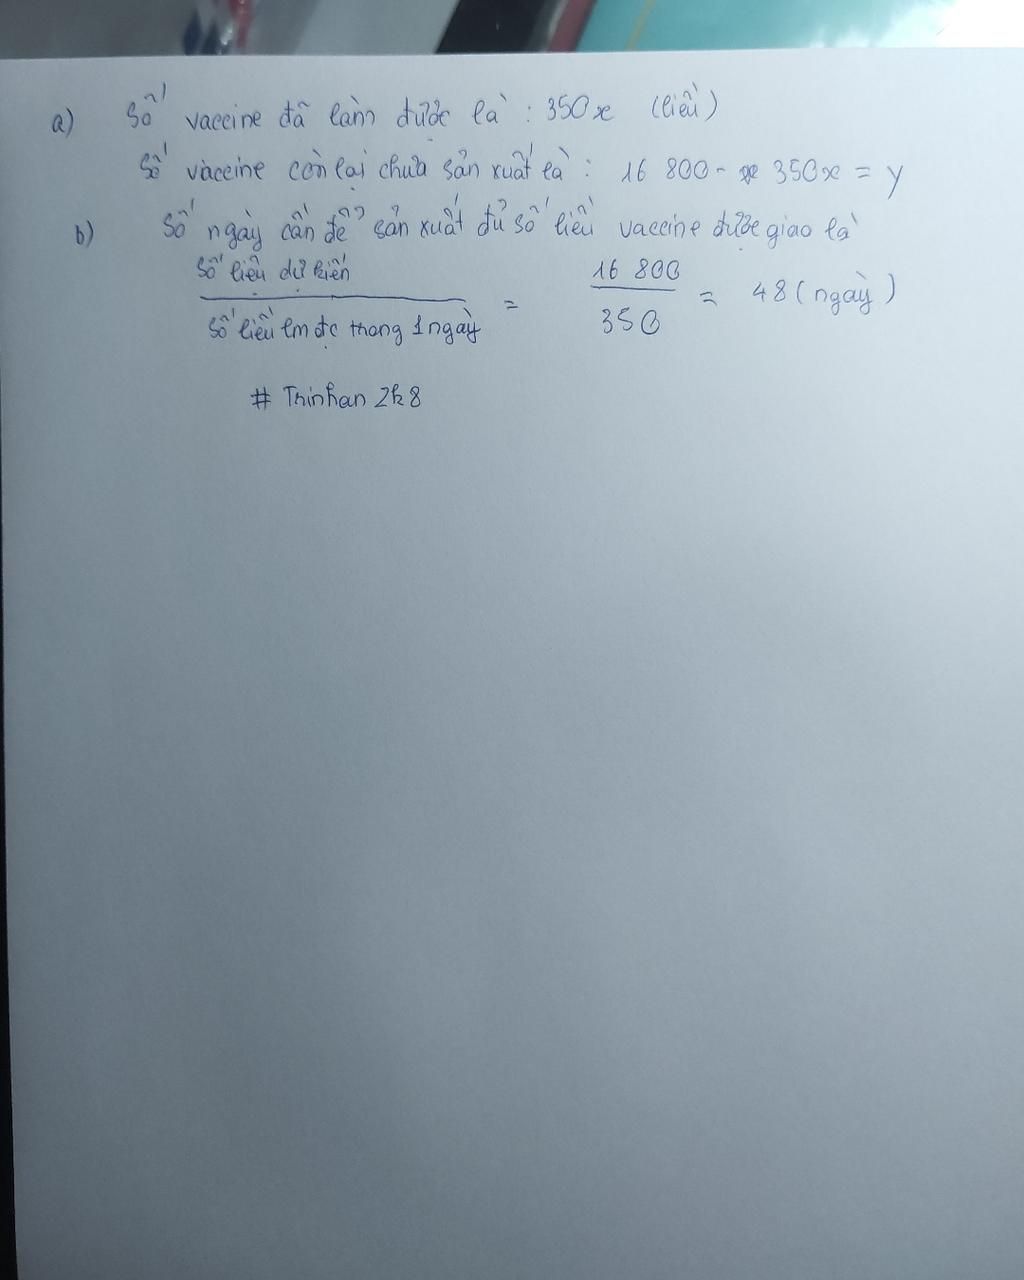 a) Số vaccine đã làm được là : 350x (liều)
Số vaccine còn lại chưa sản xuất là : 16 800 - 350x = y
b) Số ngày cần để sản xuất đủ số liều vaccine được giao là
số liều dự kiến / số liều lm đc trong 1 ngày = 16 800 / 350 = 48 (ngày)
# Trinhan 2k8